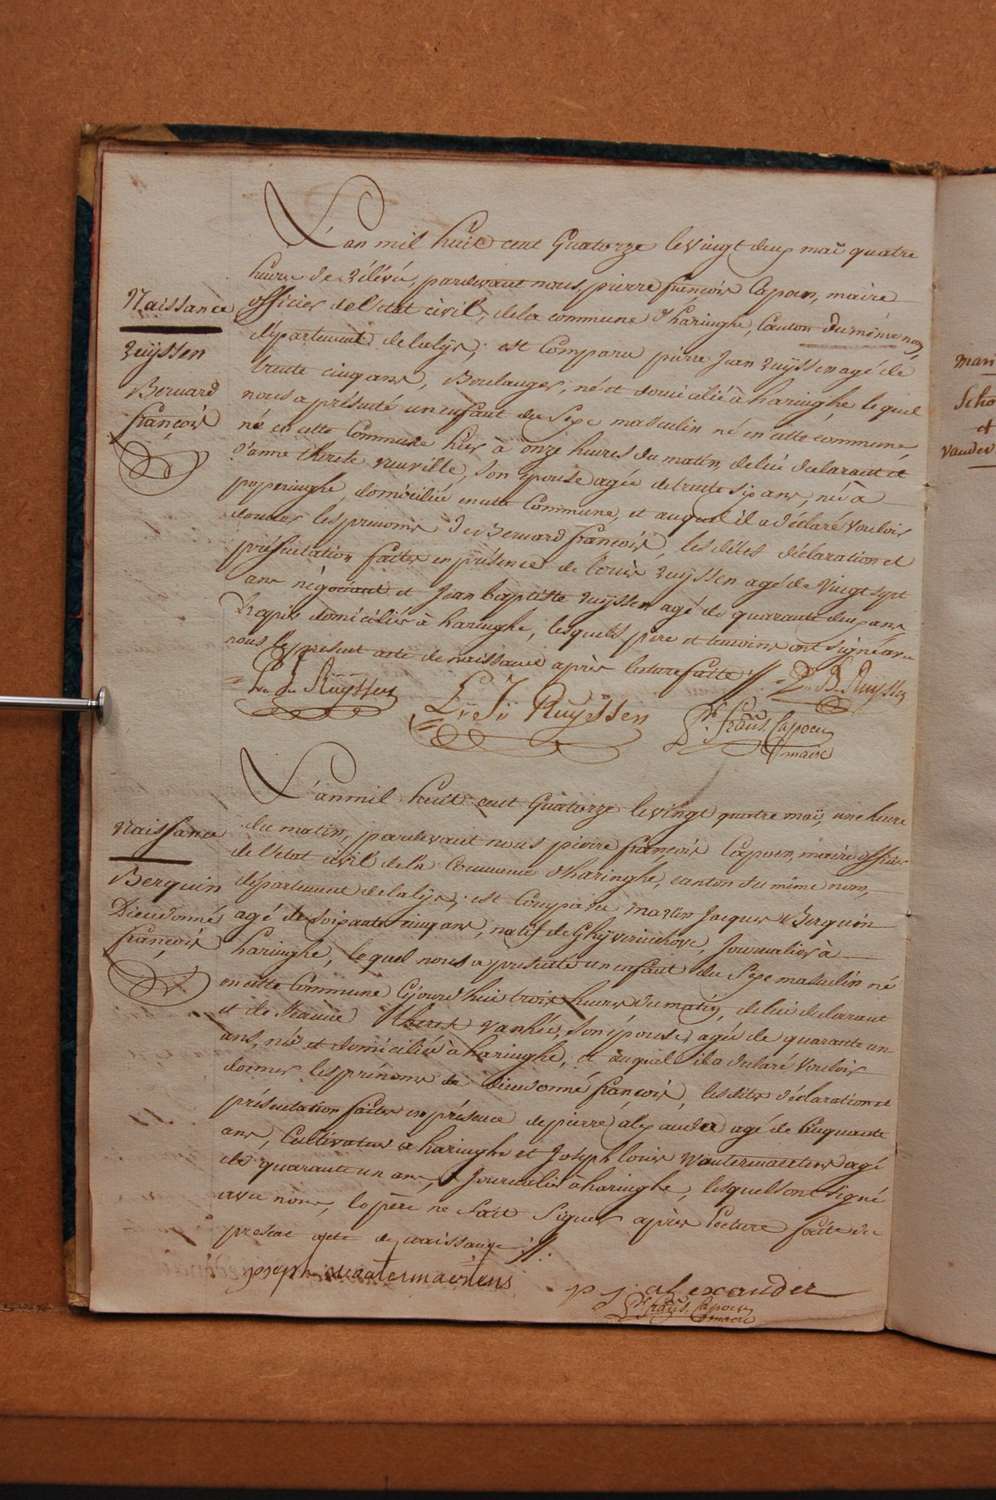 L'an mil huit cent Quatorze le vingt deux mai quatre
heures de rélévé, pardevant nous, pierre françois Capoen, maire
officier de l'etat civil, de la commune d'haringhe, Canton du même nom,
département de la lÿs; est Comparu pierre Jean Ruÿssen agé de
trente cinq ans, Boulanger, né et domicilié à haringhe lequel
nous a présenté un enfant du Sexe masculin né en cette commune
né en cette Commune hier à onze heures du matin, de lui declarant et
d'anne therese neuville, son épouse agée de trente six ans, née à
poperinghe, domiciliée en cette Commune, et auquel il a déclaré vouloir
donner les prenoms de Bernard françois, les dites déclaration et
présentation faites en présence de Louis Ruÿssen agé de vingt sept
ans négociant et Jean baptiste Ruÿssen agé de quarante deux ans
domiciliés à haringhe, lesquels père et temoins ont signé avec
nous le present acte de naissance après lecture faitte
Naissance
Ruÿssen
Bernard
françois
P. J. Ruÿssen
Ls Js Ruÿssen
J. B. Ruÿssen
pre frans Capoen
maire
L'an mil huit cent Quatorze le vingt quatre mai, une heure
du matin, pardevant nous pierre françois Capoen, maire officier
de l'etat civil de la Commune d'haringhe, canton du même nom,
département de la lÿs; est Comparu Martin Jacques Berquin
agé de Soixante cinq ans, natif de Ghÿverinchove, Journalier à
haringhe, lequel nous a presenté un enfant du Sexe masculin né
en cette Commune cejourd'hui trois heures du matin, de lui declarant
et de Jeanne therese vanhée, son épouse, agée de quarante un
ans, née et domiciliée à haringhe, et auquel il a déclaré vouloir
donner les prénoms de Dieudonné françois, lesdites déclaration et
présentation faites en présence de pierre alexander agé de Cinquante
ans, Cultivateur à haringhe et Joseph louis Wautermaertens agé
de quarante un ans, Journalier à haringhe, lesquels ont signé
avec nous, le père ne sait signer après lecture faite du
present acte de naissance
Naissance
Berquin
Dieudonné
françois
joseph wautermaertens
p j alexander
pre frans Capoen
maire
man
Scho
et
vander